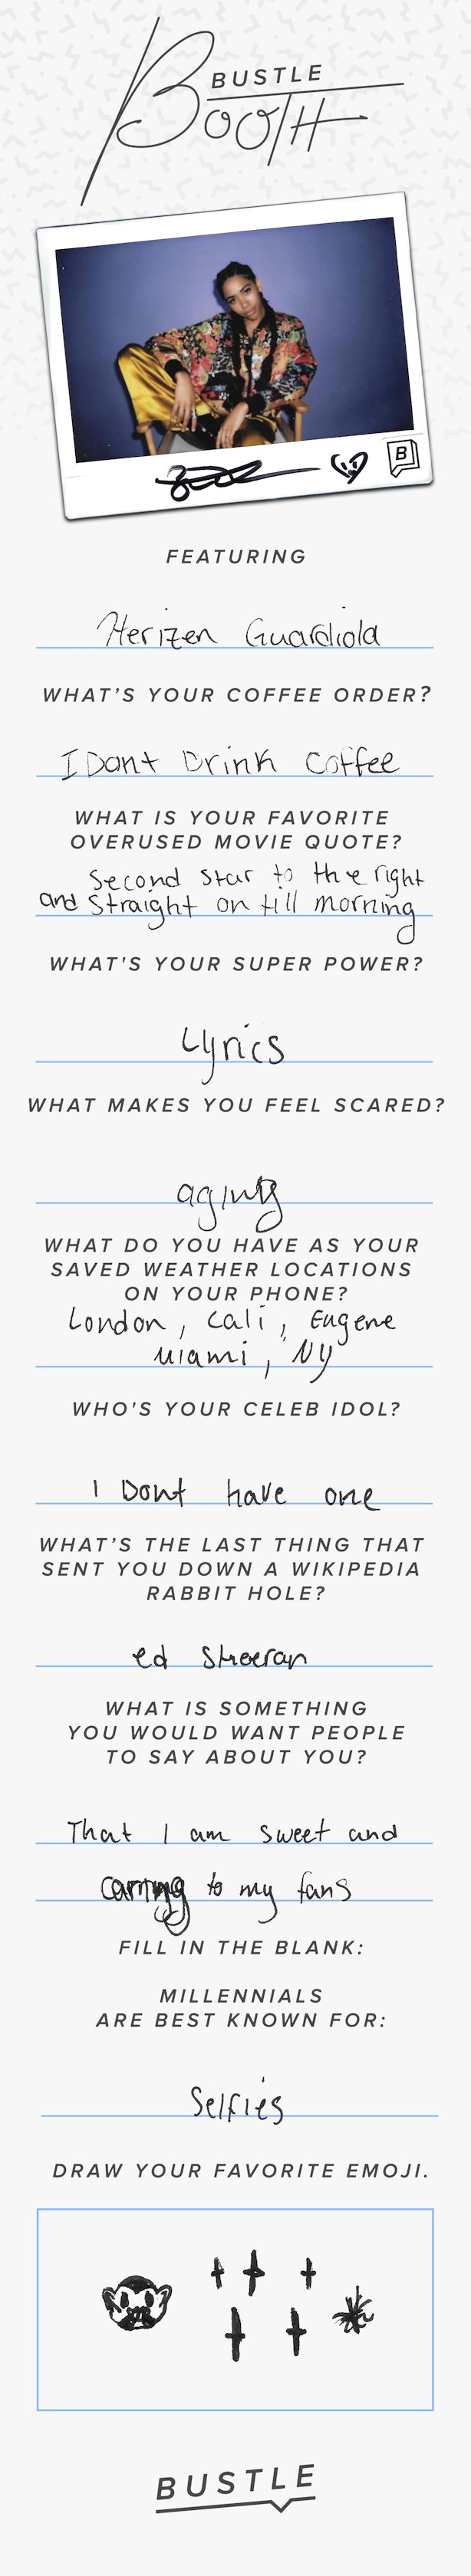 BUSTLE
BOOTH
B
FEATURING
Herizen Guardiola
WHAT'S YOUR COFFEE ORDER?
I Dont Drink Coffee
WHAT IS YOUR FAVORITE
OVERUSED MOVIE QUOTE?
Second Star to the right
and Straight on till morning
WHAT'S YOUR SUPER POWER?
Lyrics
WHAT MAKES YOU FEEL SCARED?
aging
WHAT DO YOU HAVE AS YOUR
SAVED WEATHER LOCATIONS
ON YOUR PHONE?
London, Cali, Eugene
Miami, NY
WHO'S YOUR CELEB IDOL?
I Dont have one
WHAT'S THE LAST THING THAT
SENT YOU DOWN A WIKIPEDIA
RABBIT HOLE?
ed Sheeran
WHAT IS SOMETHING
YOU WOULD WANT PEOPLE
TO SAY ABOUT YOU?
That I am sweet and
carring to my fans
FILL IN THE BLANK:
MILLENNIALS
ARE BEST KNOWN FOR:
Selfies
DRAW YOUR FAVORITE EMOJI.
BUSTLE